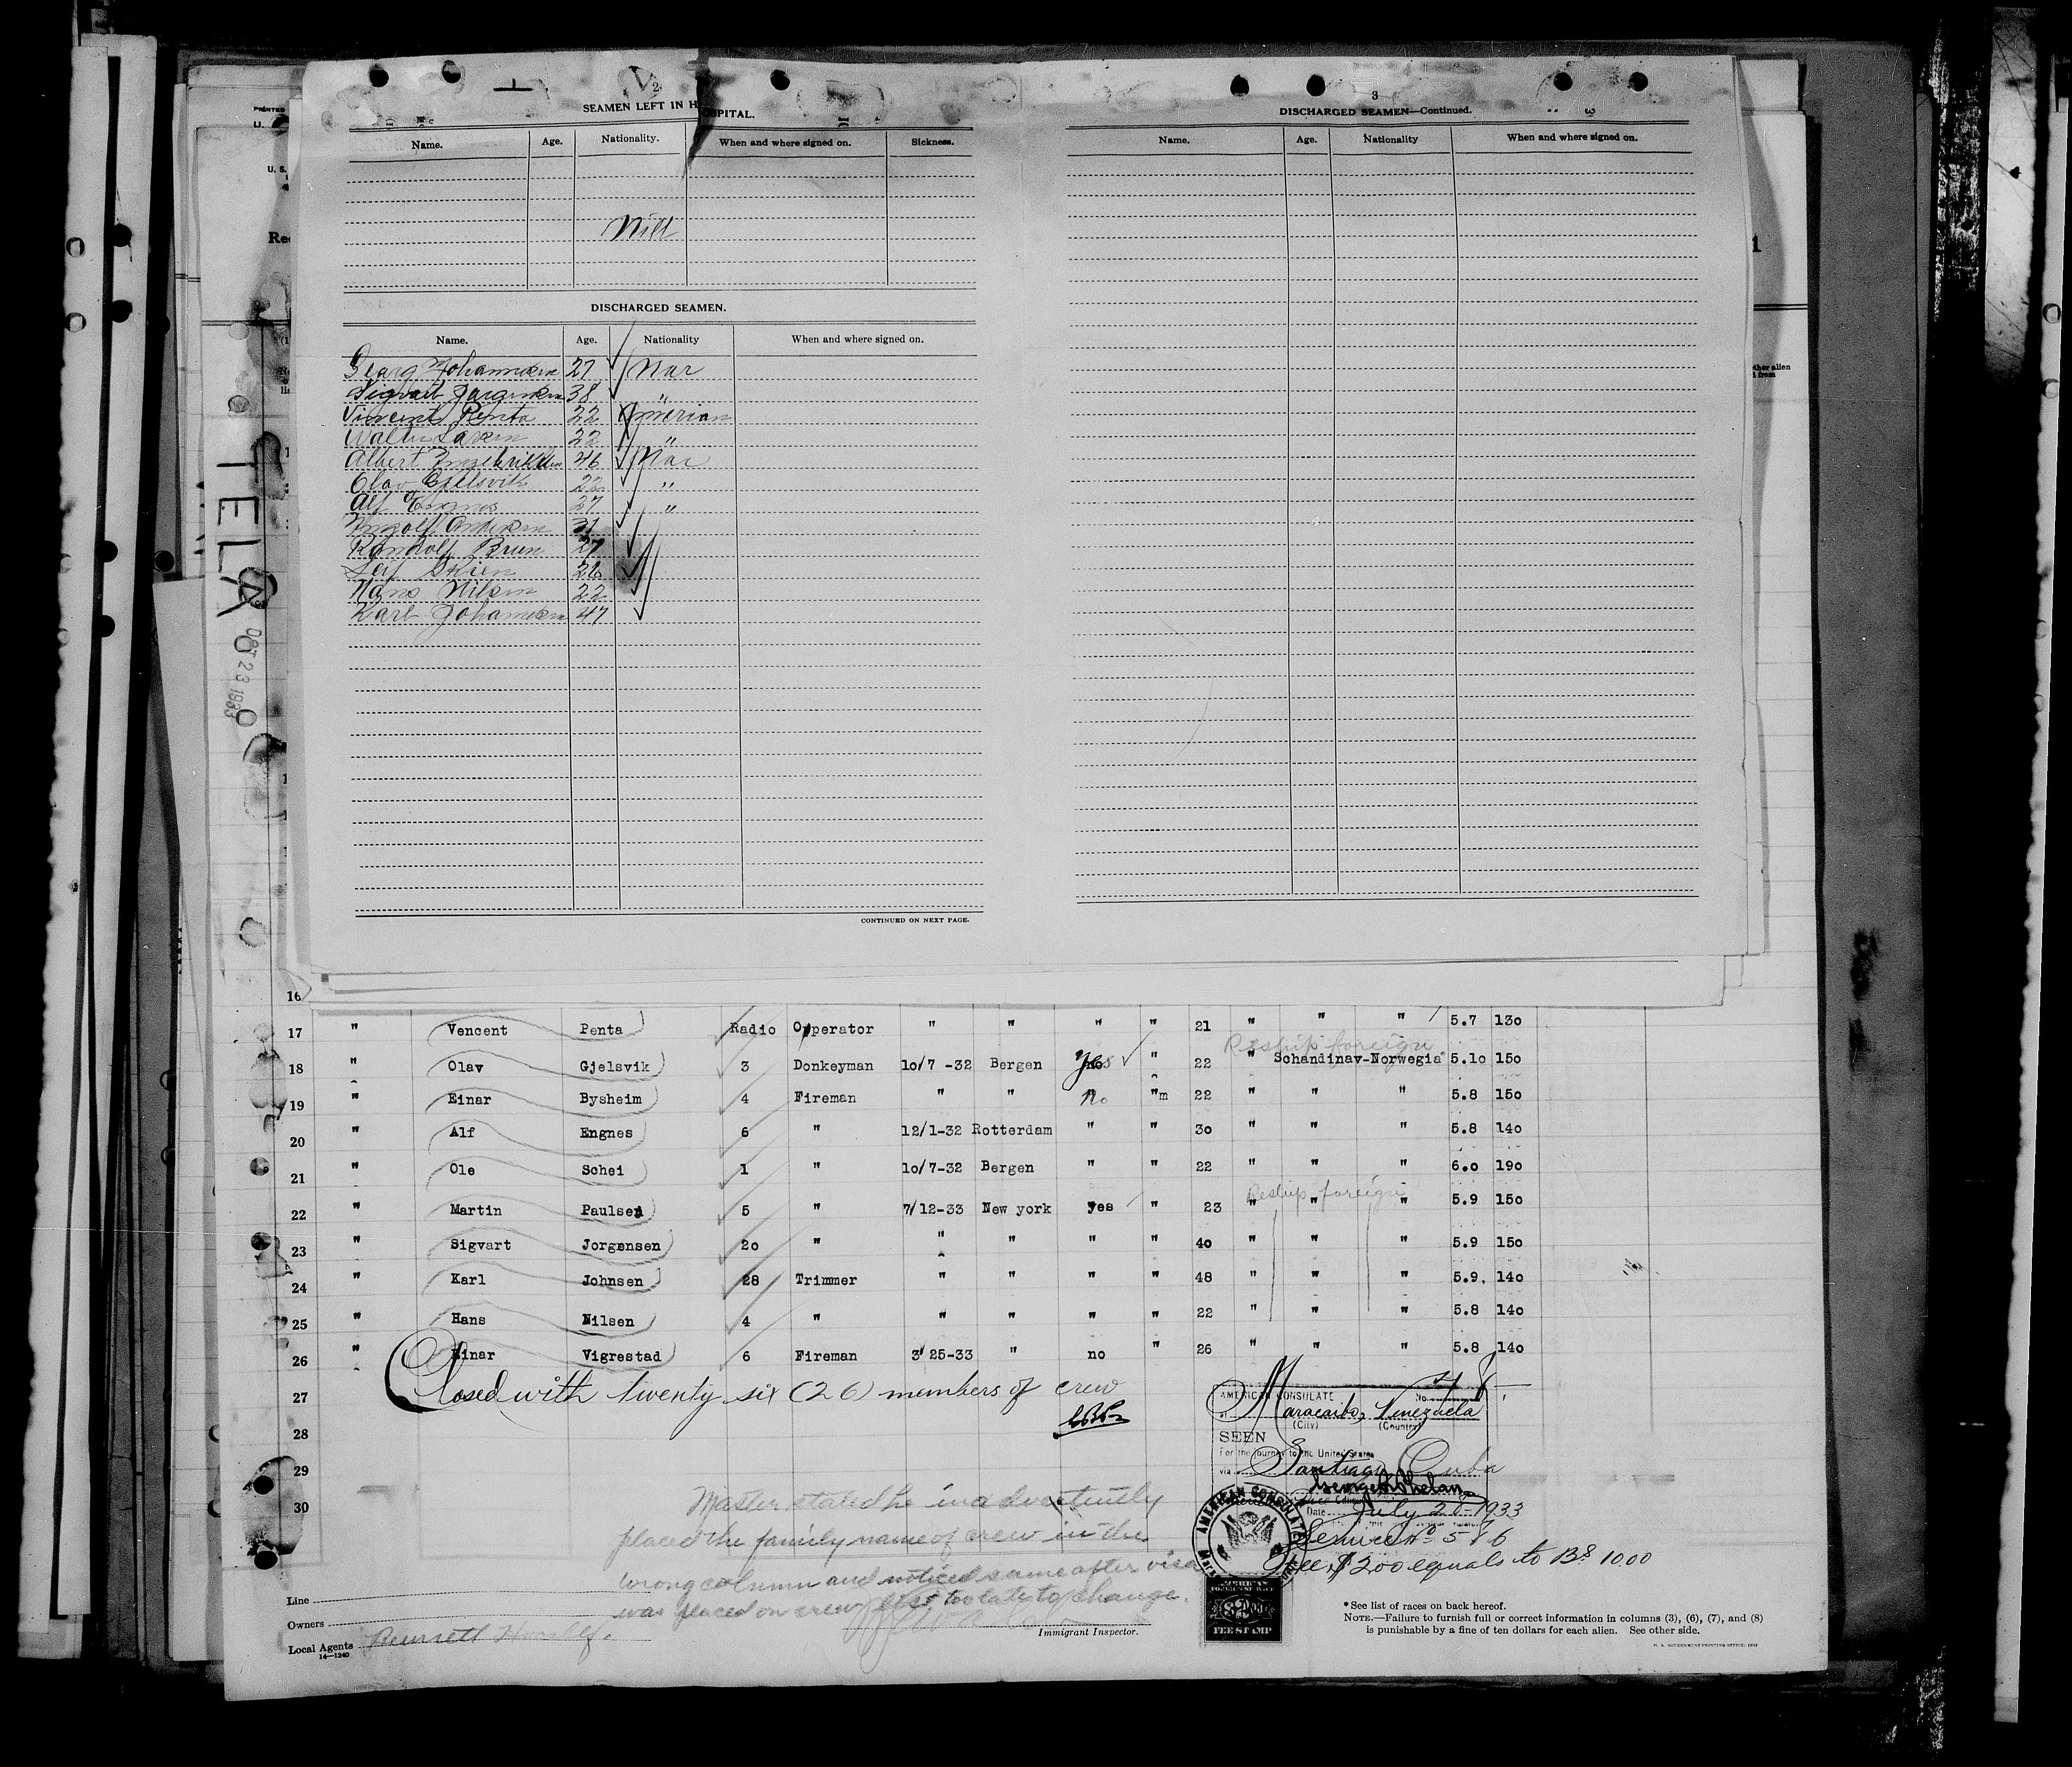 2
SEAMEN LEFT IN HOSPITAL.
Name. Age. Nationality. When and where signed on. Sickness.
Nill
DISCHARGED SEAMEN.
Name. Age. Nationality When and where signed on.
Georg Johannesen 27 Nor
Sigvart Jorgensen 38 "
Vincent Penta 22 Amerian
Walter Larsen 22 "
Albert 46 Nor
Olav Gjelsvik 22 "
Alf Engnes 27 "
Ingolf Andersen 31
Randolf Brun 27
Leif Skien 26
Hans Nilsen 22
Karl Johansen 47
CONTINUED ON NEXT PAGE.
3
DISCHARGED SEAMEN—Continued.
Name. Age. Nationality When and where signed on.
TELA
OCT 23 1933
16
17 " Vencent Penta Radio Operator " " " " 21 " " " 5.7 130
Reship foreign
18 " Olav Gjelsvik 3 Donkeyman 10/7 -32 Bergen Yes " 22 " Schandinav-Norwegia 5.10 150
19 " Einar Bysheim 4 Fireman " " No "m 22 " " " 5.8 150
20 " Alf Engnes 6 " 12/1-32 Rotterdam " " 30 " " " 5.8 140
21 " Ole Schei 1 " 10/7-32 Bergen " " 22 " " " 6.0 190
Reship foreign
22 " Martin Paulsen 5 " 7/12-33 New york yes " 23 " " " 5.9 150
23 " Sigvart Jorgensen 20 " " " " " 40 " " " 5.9 150
24 " Karl Johnsen 28 Trimmer " " " " 48 " " " 5.9. 140
25 " Hans Nilsen 4 " " " " " 22 " " " 5.8 140
26 " Einar Vigrestad 6 Fireman 3/25-33 " no " 26 " " " 5.8 140
27 Closed with twenty six (26) members of crew
28
29
30
AMERICAN CONSULATE No.
Maracaibo, Venezuela
(City) (Country)
SEEN
For the journey to the United States
via Santiago Cuba
George H Phelan
Vice Consul
Date July 28-1933
Service No 586
Fee $2.00 equals to Bs 10.00
AMERICAN CONSULATE
AMERICAN
FOREIGN SERVICE
$2.00
FEE STAMP
Master stated he inadvertently
placed the family name of crew in the
wrong column and noticed same after visa
was placed on crew list too late to change.
Line
Owners
Local Agents
14—1240
Immigrant Inspector.
* See list of races on back hereof.
NOTE.—Failure to furnish full or correct information in columns (3), (6), (7), and (8)
is punishable by a fine of ten dollars for each alien. See other side.
U. S. GOVERNMENT PRINTING OFFICE: 1932